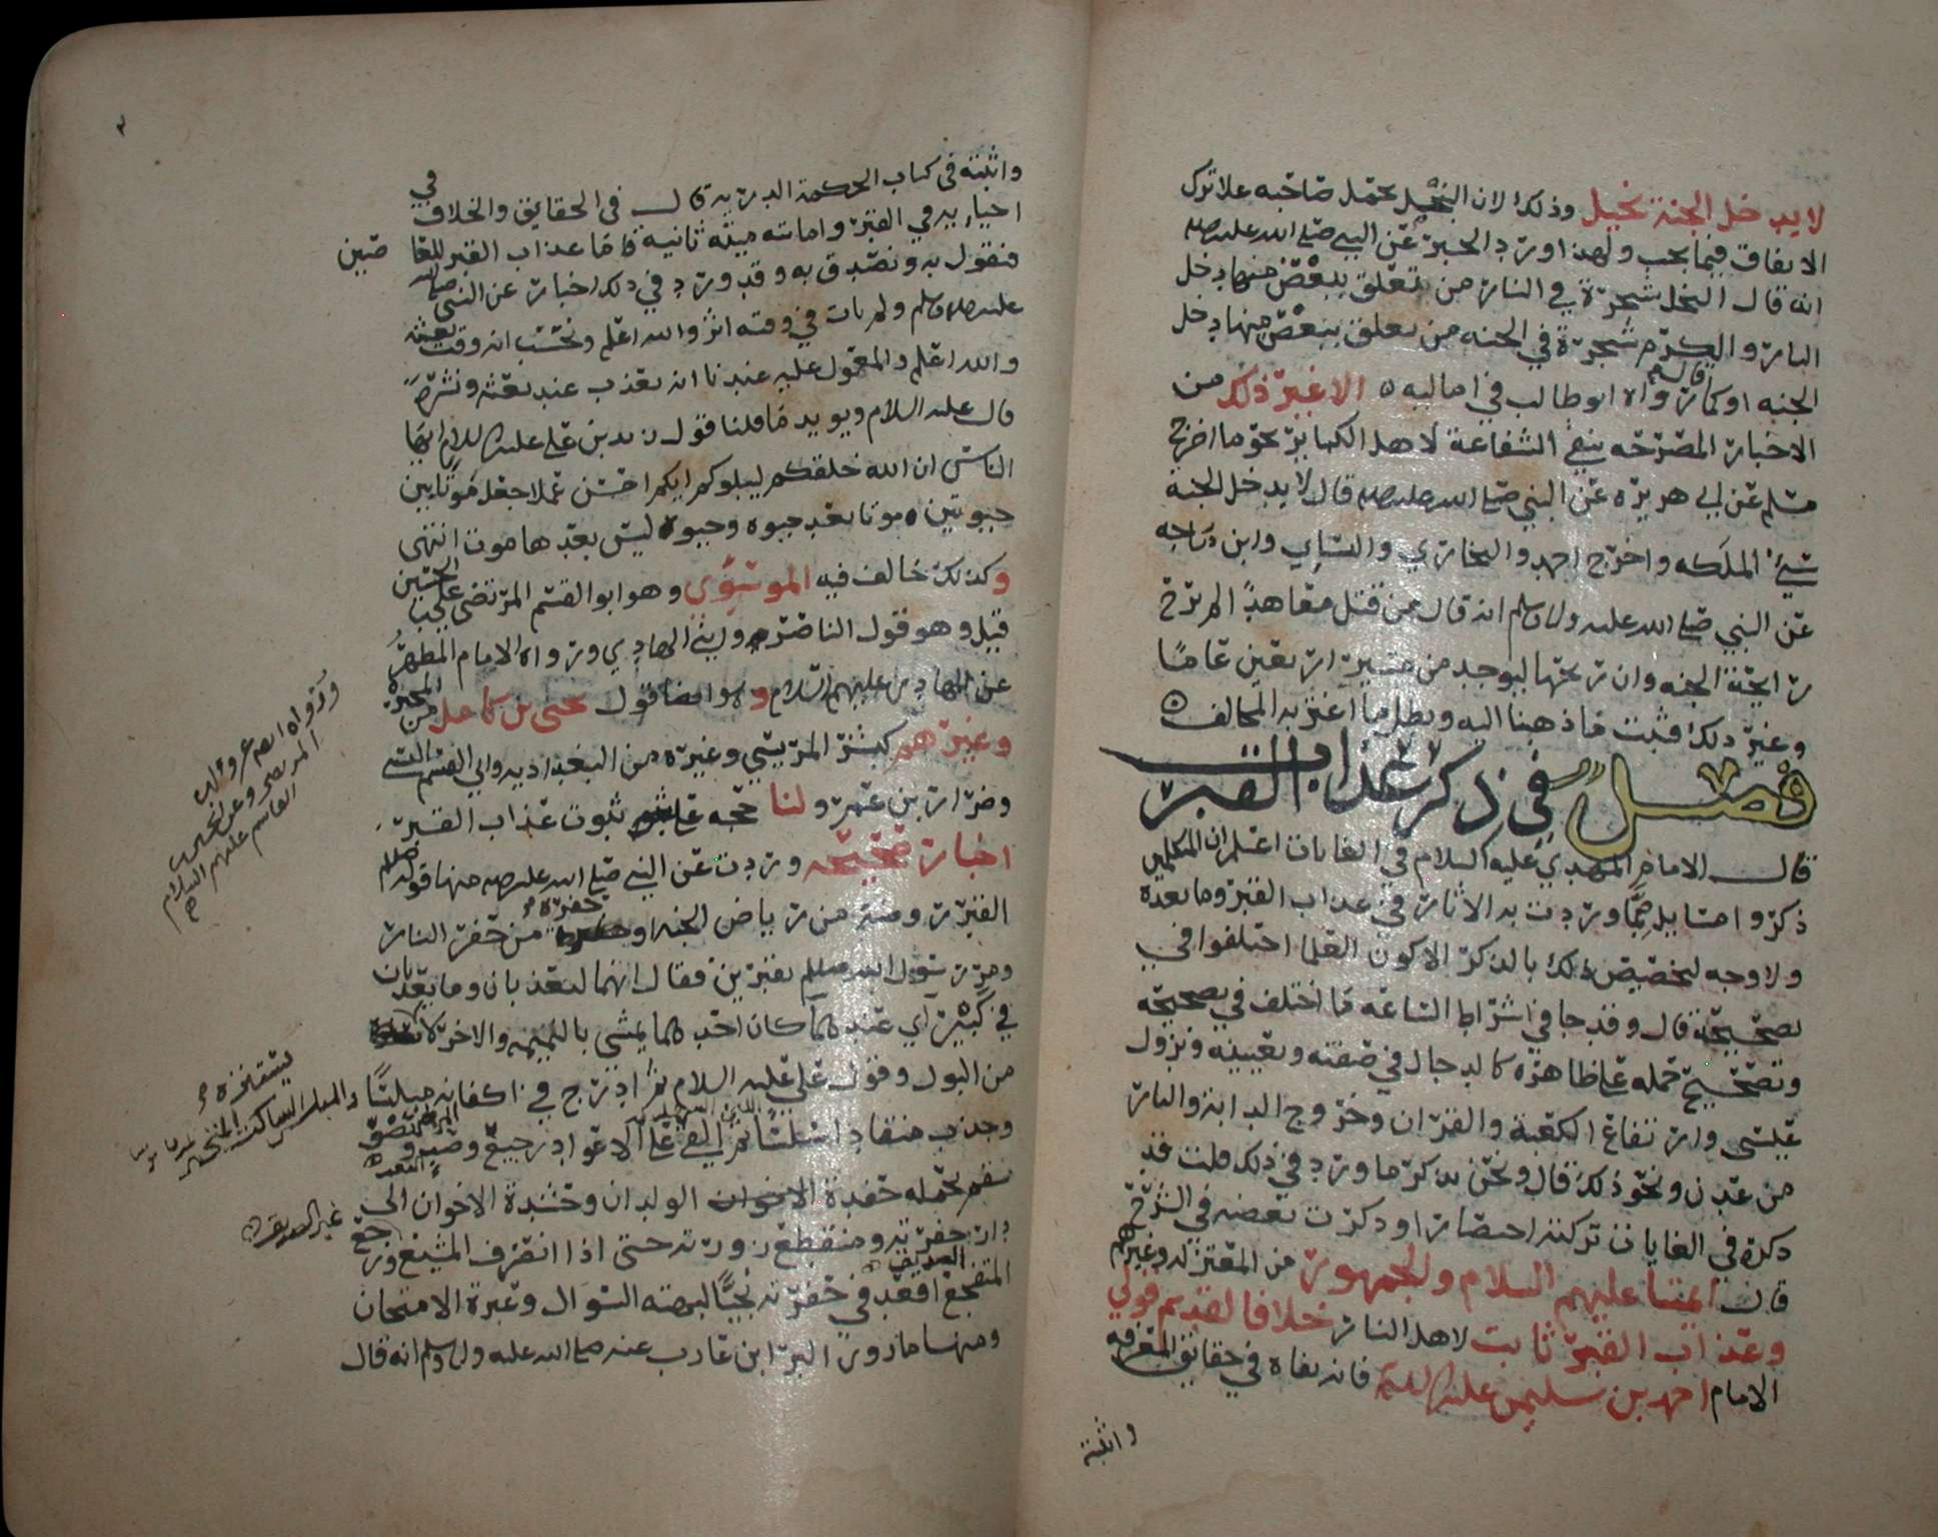 لا يدخل الجنة بخيل وذلك لان البخيل يحمل صاحبه علا ترك
الانفاق فيما يجب ولهذا ورد الخبر عن النبي صلى الله عليه
انه قال البخل شجرة في النار من تعلق ببعض منها دخل
النار والكرم شجرة في الجنه من تعلق ببعض منها دخل
الجنه او كما قال رواه ابو طالب في اماليه الا غير ذلك من
الاخبار المصرحه بنفي الشفاعة لاهل الكبائر نحو ما اخرج
مسلم عن ابي هريره عن النبي صلى الله عليه قال لا يدخل الجنة
سيئ الملكه واخرج احمد والبخاري والنساي وابن ماجه
عن النبي صلى الله عليه وسلم انه قال من قتل معاهدا لم يرح
رايحة الجنه وان ريحها ليوجد من مسيرة اربعين عاما
وغير ذلك فثبت ما ذهبنا اليه وبطل ما اغتر به المخالف
فصل في ذكر عذاب القبر
قال الامام المهدي عليه السلام في الغايات اعلم ان المتكلمين
ذكروا مسايل مما وردت به الاثار في عذاب القبر وما بعده
ولا وجه لتخصيص ذلك بالذكر الا كون العلما اختلفوا في
تصحيحه قال وقد جا في اشراط الساعه ما اختلف في تصحيحه
وتصحيح حمله على ظاهره كالدجال في صفته وتعيينه ونزول
عيسى وارتفاع الكعبة والقران وخروج الدابة والنار
من عدن ونحو ذلك قال ونحن نذكر ما ورد في ذلك قلت قد
ذكره في الغايات تركته اختصارا وذكرت بعضه في الشرح
قال ائمتنا عليهم السلام والجمهور من المعتزله وغيرهم
وعذاب القبر ثابت لاهل النار خلافا لقديم قولي
الامام احمد بن سليمن عليه السلام فانه نفاه في حقائق المعرفه
واثبته
واثبته في كتاب الحكمة الدرية قال في الحقايق والخلاف في
احيايه في القبر واماتته ميتة ثانية فاما عذاب القبر للعاصين
فنقول به ونصدق به وقد ورد في ذلك اخبار عن النبي صلى الله
عليه وسلم ولم يات في وقته اثر والله اعلم ونحسب انه وقت بعثه
والله اعلم والمعمول عليه عندنا انه يعذب عند بعثه ونشره
قال عليه السلام ويويد ما قلنا قول زيد بن علي عليه السلام ايها
الناس ان الله خلقكم ليبلوكم ايكم احسن عملا جعل موتا بين
حيوتين موتا بعد حيوه وحيوة ليس بعدها موت انتهى
وكذلك خالف فيه الموسوي وهو ابو القسم المرتضى علي بن الحسين
قيل وهو قول الناصر وابني الهادي ورواه الامام المطهر
عن الهادي عليهم السلام وهو ايضا قول يحيى بن كامل من المجبرة
وغيرهم كبشر المريسي وغيره من البغداديه وابي القسم البستي
وضرار بن عمر ولنا حجه على ثبوت عذاب القبر
اخبار صحيحه وردت عن النبي صلى الله عليه منها قوله صلعم
القبر روضة من رياض الجنه او حفرة من حفر النار
ومر رسول الله صلعم بقبرين فقال انهما ليعذبان وما يعذبان
في كبيرة اي عندهما كان احدهما يمشي بالنميمه والاخر كان
من البول وقول علي عليه السلام ثم ادرج في اكفانه مبلسا
وجذب منقادا سلسا ثم القي على الاعواد رجيع وصب و
سقم تحمله حفدة الولدان وحشدة الاخوان الى
دار غربته ومنقطع زورته حتى اذا انصرف المشيع ورجع
المتفجع اقعد في حفرته نجيا لبهتة السوال وعثرة الامتحان
ومنها ما روى البرا بن عازب عنه صلى الله عليه وسلم انه قال
يستنزه
القاسم عليهم السلام